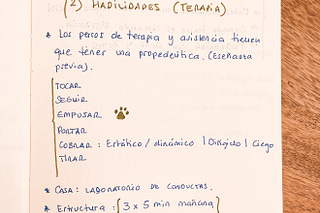 (2). HABILIDADES (TERAPIA)
* Los perros de terapia y asistencia tienen
que tener una propedeútica. (enseñanza
previa).
TOCAR
SEGUIR
EMPUJAR
PORTAR
COBRAR : Estático / dinámico | Dirigido | Ciego
TIRAR
* CASA: LABORATORIO DE CONDUCTAS.
* Estructura : { 3 x 5 min mañana }